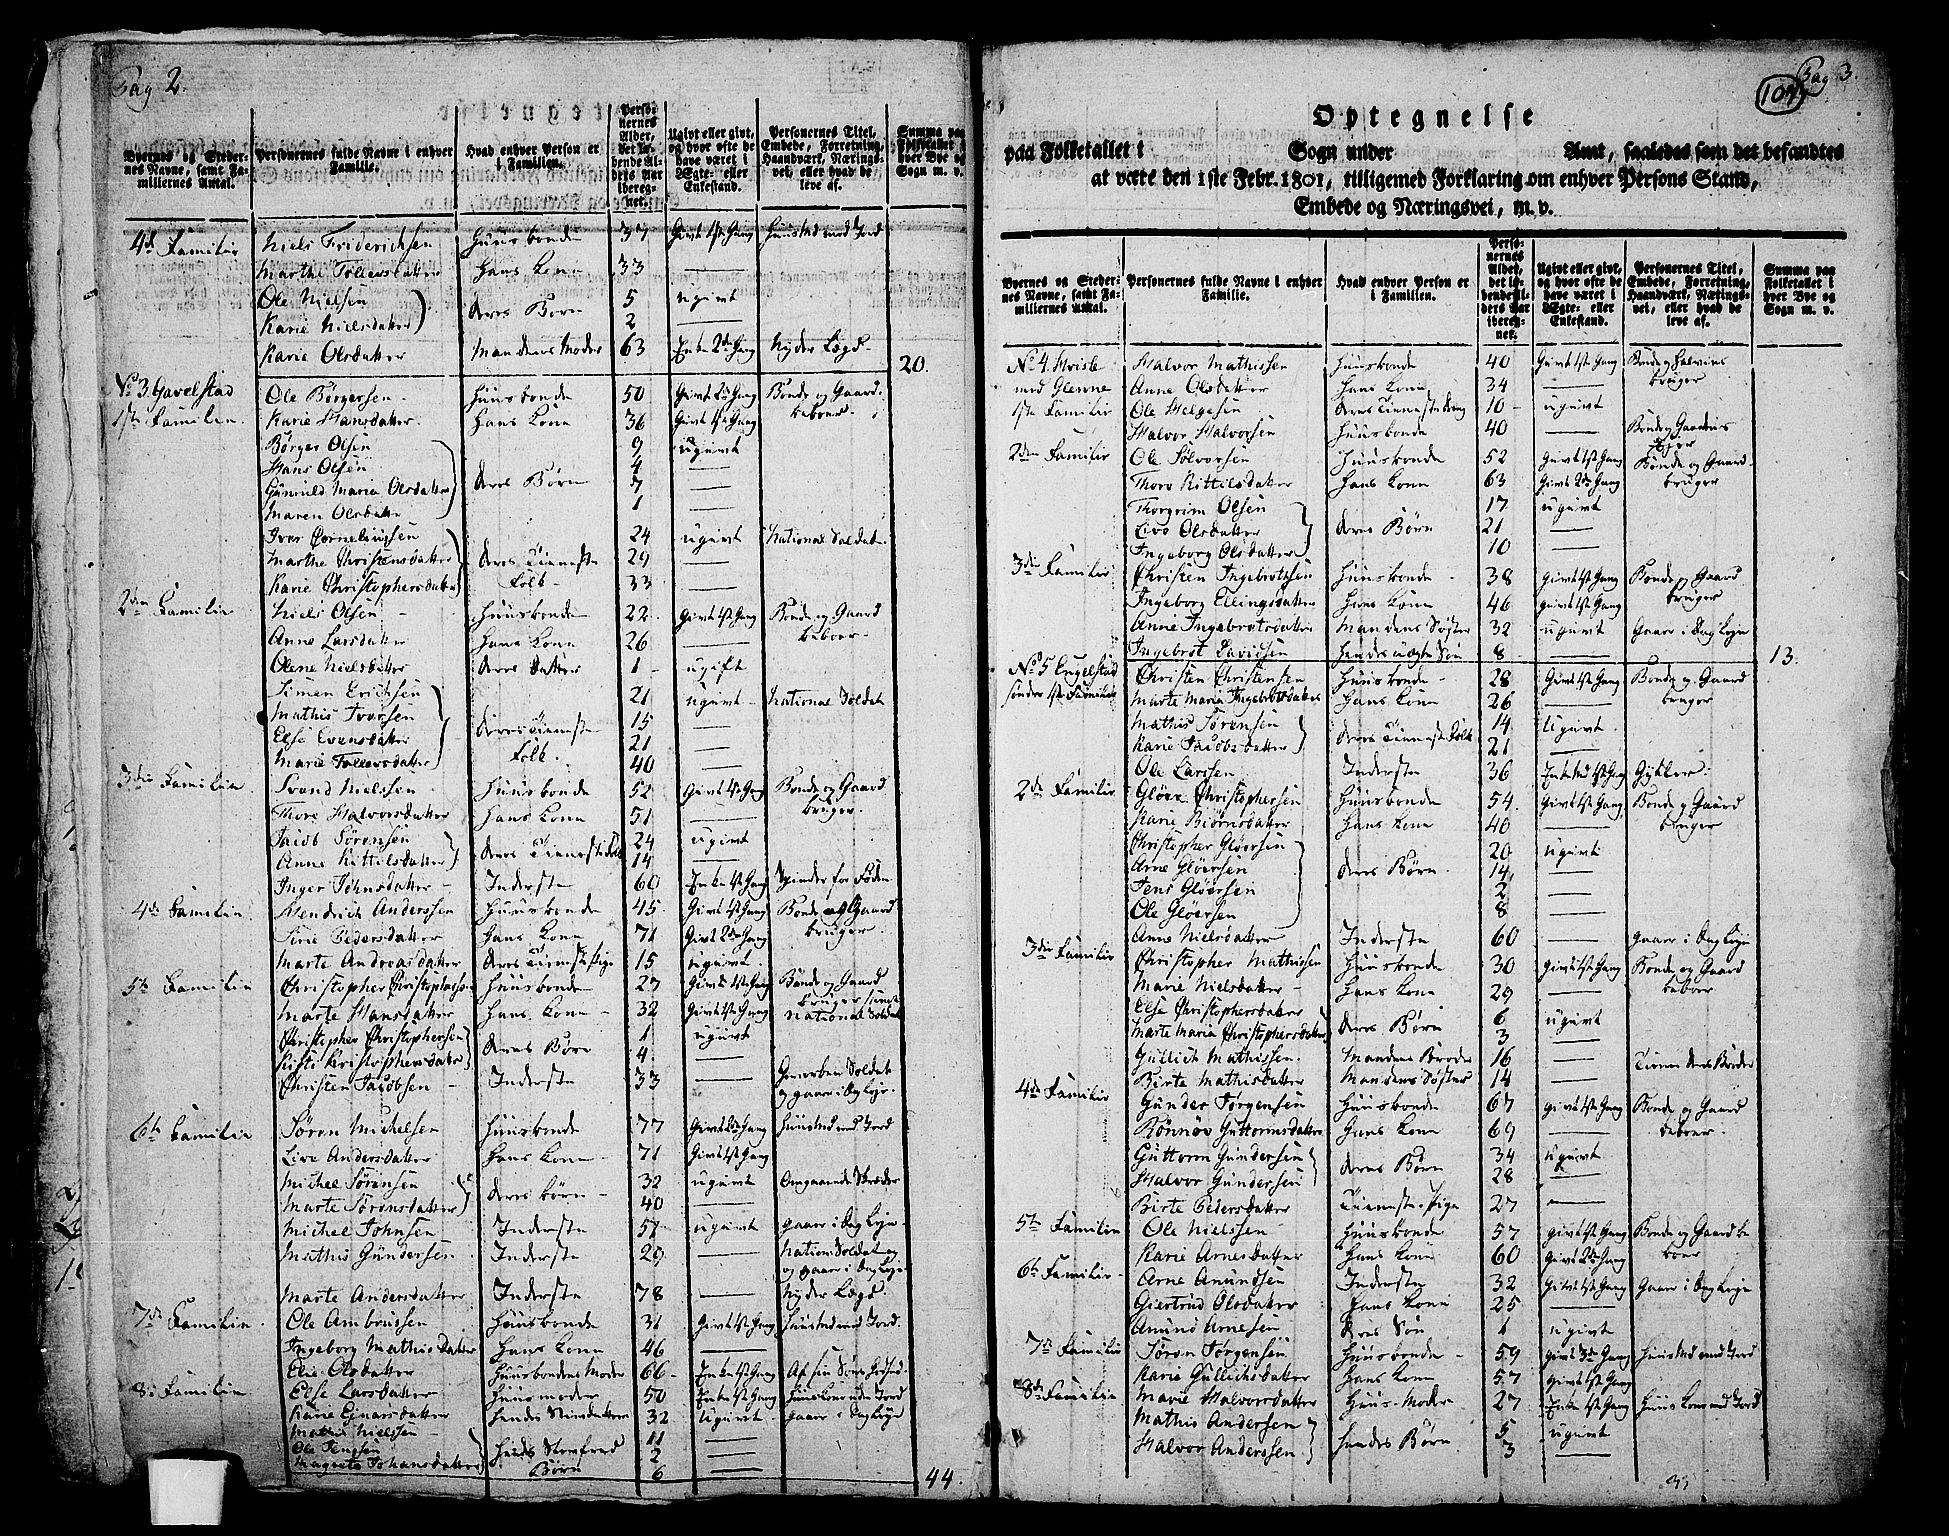 Pag 2.
Byernes og Stedernes Navne, samt Familiernes Antal.
Personernes fulde Navne i enhver Familie.
Hvad enhver Person er i Familien.
Personernes Alder, det løbende Alders Aar iberegnet.
Ugivt eller givt, og hvor ofte de have været i Ægte- eller Enkestand.
Personernes Titel, Embede, Forretning, Haandværk, Næringsvei, eller hvad de leve af.
Summa paa Folketallet i hver Bye og Sogn m. v.
4de Familie Niels Friderichsen Huusbonde 37 Givt 1ste Gang Huusmd med Jord
Marthe Tollevsdatter Hans Kone 33
Ole Nielsen 5 ugivt
deres Børn
Karie Nielsdatter 2
Karie Olsdatter Mandens Moder 63 Enke 2den Gang Nyder Lægd 20.
No 3 Gavelstad Ole Børgersen Huusbonde 50 Givt 2den Gang Bonde og Gaard
1ste Familie Karie Hansdatter Hans Kone 36 Givt 1ste Gang beboer
Børger Olsen 9 ugivt
Hans Olsen 4
Gunnild Maria Olsdatter deres Børn 7
Maren Olsdatter 1
Iver Cornelinssen 24 ugivt National Soldat
Marthe Christensdatter deres Tieneste 29
Karie Christophersdatter Folk 33
2den Familie Niels Olsen Huusbonde 22 Givt 1ste Gang Bonde og Gaard
Anne Larsdatter Hans Kone 26 beboer
Olene Nielsdatter deres Datter 1 ugift
Simen Erichsen 21 ugivt National Soldat
Mathis Iversen deres Tieneste 15
Else Evensdatter Folk 21
Marie Tollevsdatter 40
3die Familie Svend Nielsen Huusbonde 52 Givt 1ste Gang Bonde og Gaard
Thore Halvorsdatter Hans Kone 51 bruger
Jacob Sørensen 24 ugivt
Anne Kittilsdatter deres Tienestefolk 14
Inger Johnsdatter Inderste 60 Enke 1ste Gang Spinder for Føden
4de Familie Hendrich Anderssen Huusbonde 45 Givt 1ste Gang Bonde og Gaard
Sirie Pedersdatter Hans Kone 71 Givt 2den Gang bruger
Marte Andreasdatter deres Tienestepige 15 ugivt
5te Familie Christopher Christophersen Huusbonde 27 Givt 1ste Gang Bonde og Gaard
Marte Hansdatter Hans Kone 32 Givt 1ste Gang bruger samt National Soldat
Christopher Christophersen 1 ugivt
deres Børn
Kisti Kristophersdatter 4
Christen Jacobsen Inderste 33 Gevorben Soldat
og gaaer i Dag Leje
6te Familie Søren Michelsen Huusbonde 77 Givt 2den Gang Huusmd med Jord
Live Andersdatter Hans Kone 71 Givt 1ste Gang
Michel Sørensen 32 ugivt Omgaaende Skræder
deres børn
Marte Sørensdatter 40
Michel Johnsen Inderste 51 ugivt gaaer i Dag Leje
Mathis Gundersen Inderste 29 Nation: Soldat og
og gaaer i Dag Leje
Marte Andersdatter Inderste 78 Nyder Lægd
7de Familie Ole Ambrussen Huusbonde 31 Givt 1ste Gang Huusmd med Jord
Ingeborg Mathis Datter Hans Kone 46
Elie Olsdatter Huusbondens Moder 66 Enke 1ste Gang
8de Familie Else Larsdatter Huusmoder 50 Enke 1ste Gang
Karie Ejnarsdatter hendes Stivdatter 32 Ugivt gaaer i Dag Leje
Mathis Nielssen 11
Ole Jenssen hendes 2
Magrete Johansdatter Børn 6
44.
Pag 3.
Optegnelse
paa Folketallet i Sogn under Amt, saaledes som det befandtes
at være den 1ste Febr. 1801, tilligemed Forklaring om enhver Persons Stand,
Embede og Næringsvei, m. v.
Byernes og Stedernes Navne, samt Familiernes Antal.
Personernes fulde Navne i enhver Familie.
Hvad enhver Person er i Familien.
Personernes Alder, det løbende Alders Aar iberegnet.
Ugivt eller givt, og hvor ofte de have været i Ægte- eller Enkestand.
Personernes Titel, Embede, Forretning, Haandværk, Næringsvei, eller hvad de leve af.
Summa paa Folketallet i hver Bye og Sogn m. v.
No 4. Hviste Halvor Mathissen Huusbonde 40 Givt 1ste Gang Bonde og
med Glenne Anne Olsdatter Hans Kone 34 bruger
1ste Familie Ole Helgesen deres Tieneste dreng 10 ugivt
Halvor Halvorsen Huusbonde 40 Bonde og Gaardens
2den Familie Ole Sølvorsen Huusbonde 52 Givt 1ste Gang Bonde og Gaard
Thore Kittilsdatter Hans Kone 63 Givt 2den Gang bruger
Thorgrim Olsen 17 ugivt
Live Olsdatter deres Børn 21
Ingeborg Olsdatter 10
3die Familie Christen Ingebretsen Huusbonde 38 Givt 1ste Gang Bonde og Gaard
Ingeborg Ellingsdatter Hans Kone 46 Givt 1ste Gang bruger
Anne Ingebretsdatter Mandens Søster 32 ugivt Gaaer i Dag Leje
Ingebret Davidsen hendes uægte Søn 8 13.
No 5 Engelstad Christen Christensen Huusbonde 28 Givt 1ste Gang Bonde og Gaard
søndre 1ste Familie Marte Maria Ingebretsdatter Hans Kone 26 bruger
Mathis Sørensen 14 Ugivt
Karie Jacobsdatter deres Tieneste Folk 21
Ole Larssen Inderste 36 Enkemd 1ste Gang
2de Familie Gløer Christophersen Huusbonde 54 Givt 1ste Gang Bonde og Gaard
Karie Biørnsdatter Hans Kone 40 bruger
Christopher Gløersen 20 ugivt
Arne Gløersen deres Børn 14
Jens Gløersen 2
Ole Gløersen 8
Anne Nielsdatter Inderste 60 gaaer i Dag Leje
3die Familie Christopher Mathissen Huusbonde 30 Givt 1ste Gang Bonde og Gaard
Marie Nielsdatter Hans Kone 29 beboer
Else Christophersdatter 6 ugivt
Marte Maria Christophersdatter deres Børn 3
Gullich Mathissen Mandens Broder 16 Tiener deres Broder
Birte Mathisdatter Mandens Søster 14
4de Familie Gunder Jørgensen Huusbonde 67 Givt 1ste Gang Bonde og Gaard
Rønnøv Guttormsdatter Hans Kone 69 beboer
Guttorm Gundersen 34 Ugivt
Halvor Gundersen deres Børn 28
Birte Pedersdatter Tieneste Pige 27
5te Familie Ole Nielssen Huusbonde 57 Givt 1ste Gang Bonde og Gaard be
Karie Arnesdatter Hans Kone 60 Givt 2den Gang boer
6te Familie Arne Amundsen Inderste 32 Givt 1ste Gang Gaaer i Dag Leje
Giertrud Olsdatter Hans Kone 25
Amund Arnesen deres Søn 1 ugivt
7de Familie Søren Jørgensen Huusbonde 59 Givt 3die Gang Huusmd med Jord
Karie Gullichsdatter Hans Kone 57 Givt 1ste Gang
8de Familie Marie Halvorsdatter Huus-Moder 27 Enke 1ste Gang Huus Kone med Jord
Mathis Andersen 5 ugivt
Halvor Anderssen hendes Børn 3